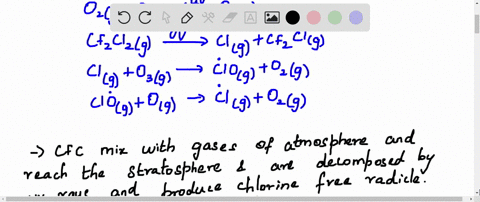 O₂(
Cf₂Cl₂(g) UV→ Cl(g) + Cf₂Cl(g)
Cl(g) + O₃(g) → ĊlO(g) + O₂(g)
ClȮ(g) + O(g) → Ċl(g) + O₂(g)
→ CFC mix with gases of atmosphere and
reach the stratosphere & are decomposed by
rays and produce chlorine free radicle.